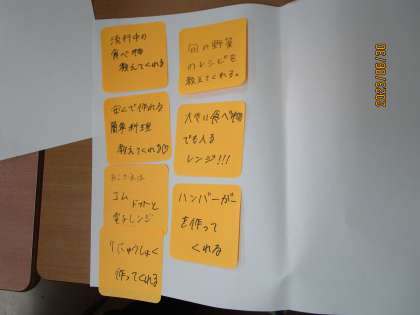 流行中の
食べ物
教えてくれる
安くで作れる
簡単料理
教えてくれる♡
ゴム
電子レンジ
りにゅうしょく
作ってくれる
旬の野菜
のレシピを
教えてくれる。
大きい食べ物
でも入る
レンジ!!!
ハンバーガー
を作って
くれる